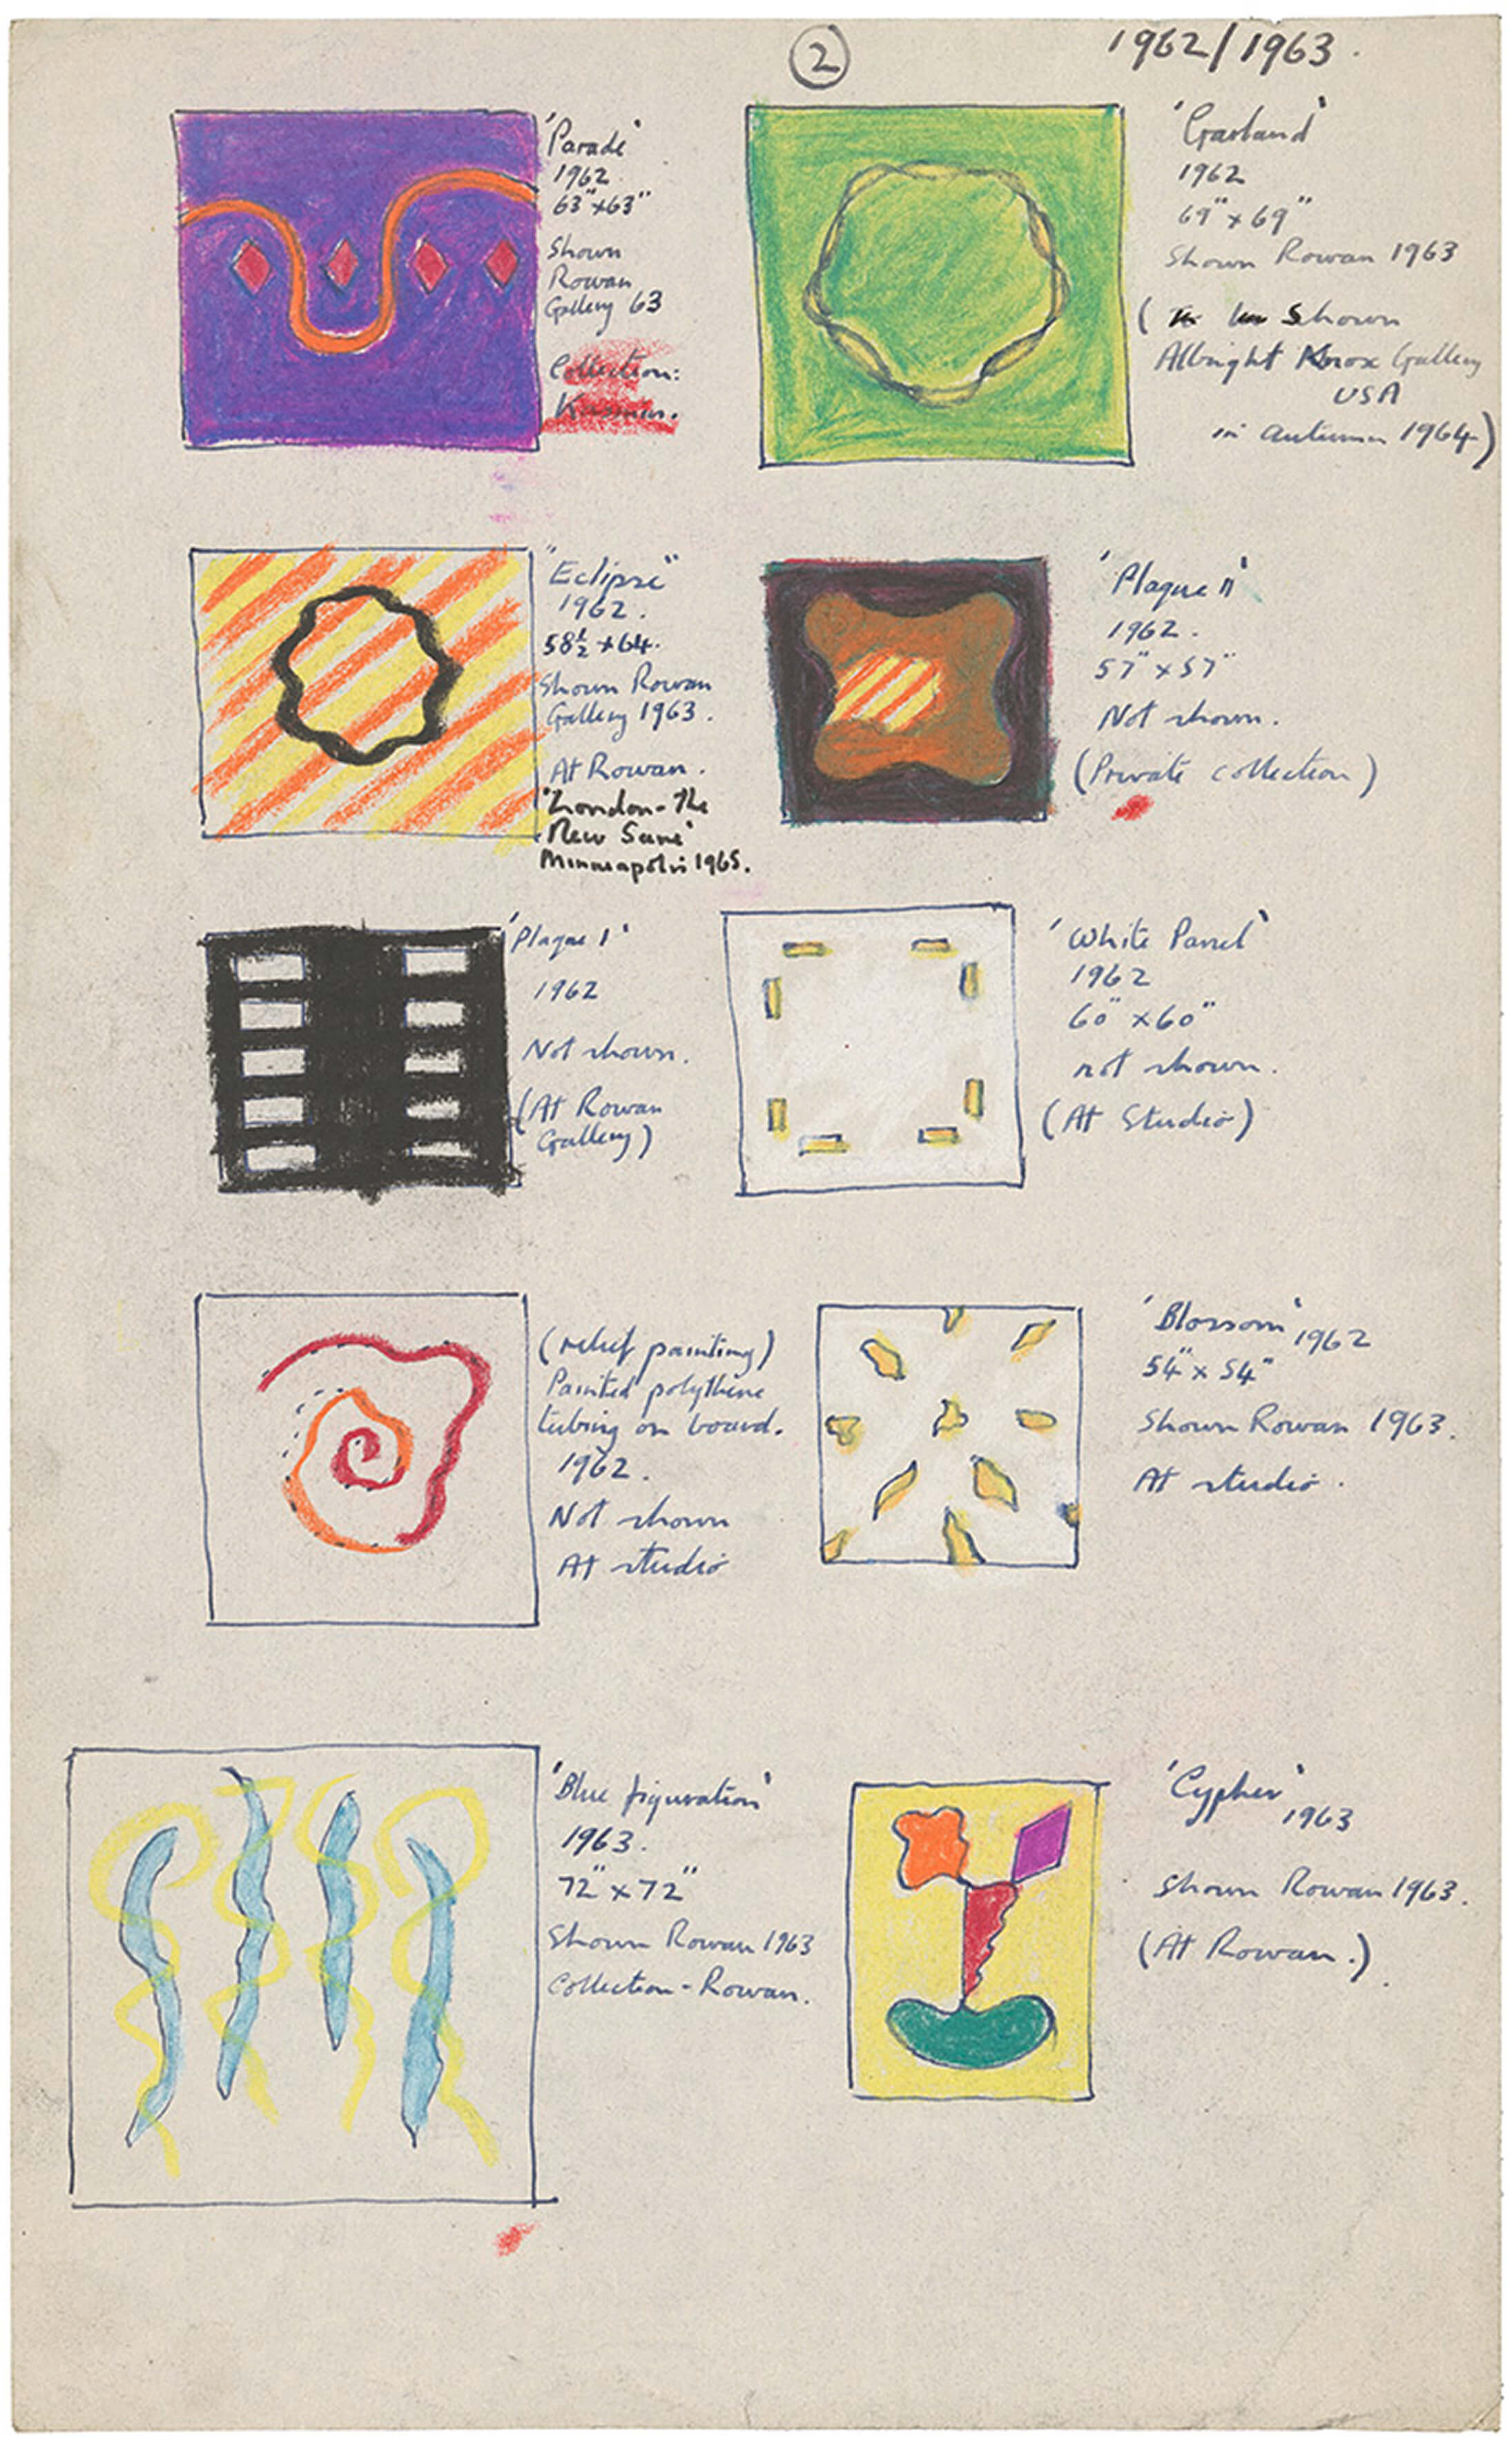 2
1962/1963.
'Parade'
1962
63"x63"
Shown
Rowan
Gallery 63
Collection:
Kasmin.
'Garland'
1962
69" x 69"
Shown Rowan 1963
( Shown
Albright Knox Gallery
USA
in autumn 1964)
"Eclipse"
1962.
58½ x 64.
Shown Rowan
Gallery 1963.
At Rowan.
'London-The
New Scene'
Minneapolis 1965.
'Plaque II'
1962.
57" x 57"
Not shown.
(Private collection)
'Plaque I'
1962
Not shown.
(At Rowan
Gallery)
'White Panel'
1962
60" x 60"
not shown.
(At Studio)
(relief painting)
Painted polythene
tubing on board.
1962.
Not shown
At studio
'Blossom' 1962
54" x 54"
Shown Rowan 1963.
At studio.
'Blue figuration'
1963.
72" x 72"
Shown Rowan 1963
Collection - Rowan.
'Cypher'
1963
Shown Rowan 1963.
(At Rowan.)